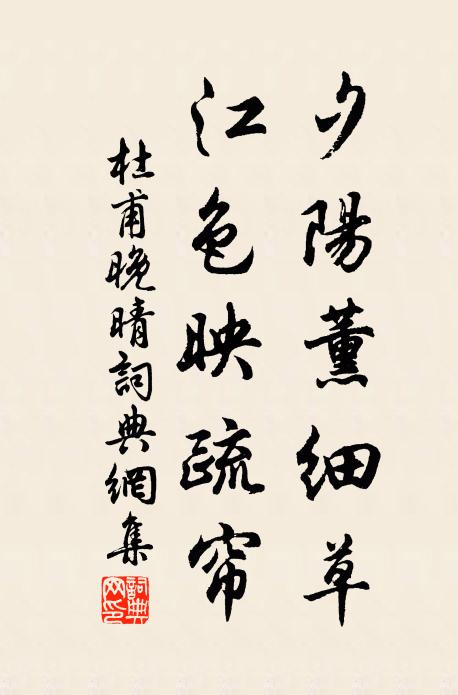 夕陽薰細草
江色映疏帘
杜甫晚晴詞典網集
詞典网印